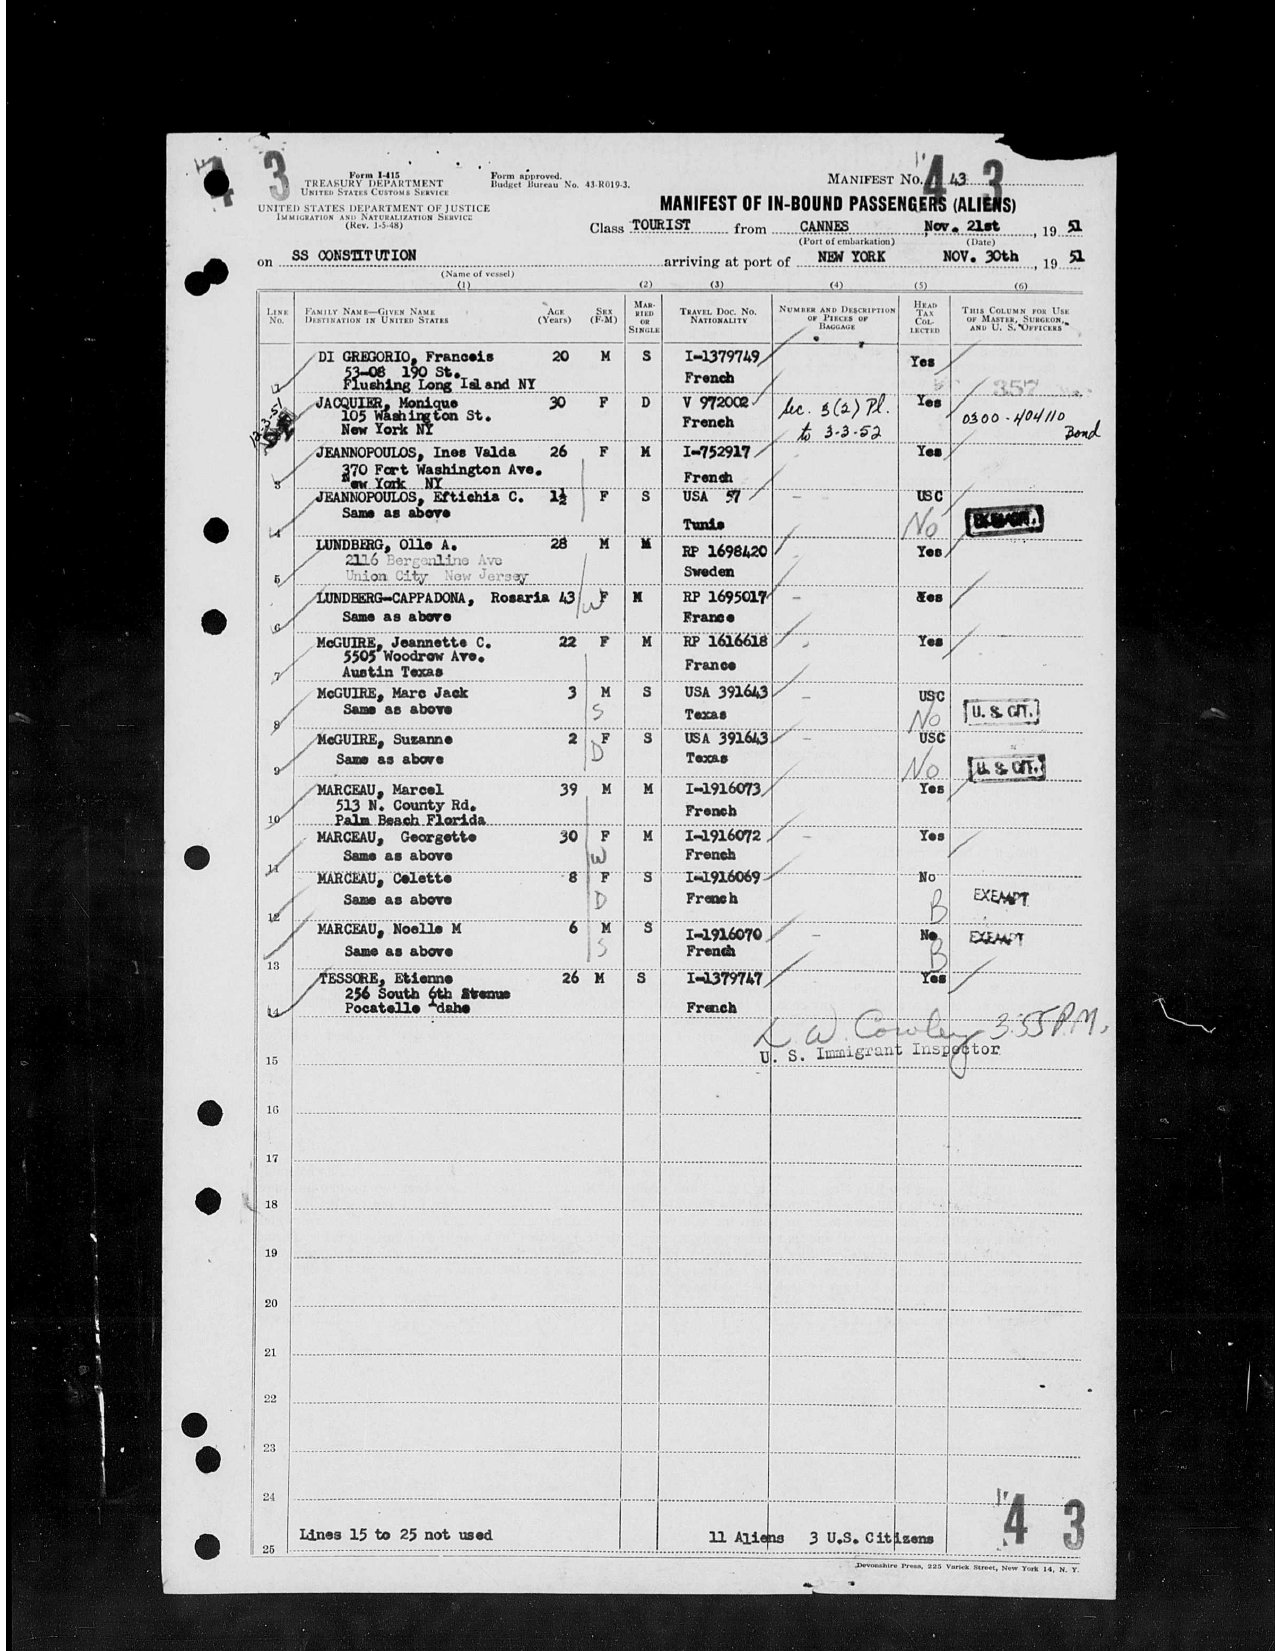 43
43
Form I-415
TREASURY DEPARTMENT
UNITED STATES CUSTOMS SERVICE
Form approved.
Budget Bureau No. 43-R019-3.
MANIFEST No. 43
UNITED STATES DEPARTMENT OF JUSTICE
IMMIGRATION AND NATURALIZATION SERVICE
(Rev. 1-5-48)
MANIFEST OF IN-BOUND PASSENGERS (ALIENS)
Class TOURIST from CANNES Nov. 21st, 19 51
(Port of embarkation) (Date)
on SS CONSTITUTION arriving at port of NEW YORK NOV. 30th, 19 51
(Name of vessel)
(1) (2) (3) (4) (5) (6)
LINE No. FAMILY NAME—GIVEN NAME DESTINATION IN UNITED STATES AGE (Years) SEX (F-M) MARRIED OR SINGLE TRAVEL DOC. NO. NATIONALITY NUMBER AND DESCRIPTION OF PIECES OF BAGGAGE HEAD TAX COLLECTED THIS COLUMN FOR USE OF MASTER, SURGEON, AND U. S. OFFICERS
DI GREGORIO, Francois 20 M S I-1379749 Yes
53-08 190 St. French
1 Flushing Long Island NY 357
JACQUIER, Monique 30 F D V 972002 Sec. 3(2) Pl. Yes 0300-404110
12-3-51 105 Washington St. French to 3-3-52 Bond
New York NY
JEANNOPOULOS, Ines Valda 26 F M I-752917 Yes
370 Fort Washington Ave. French
3 New York NY
JEANNOPOULOS, Eftichia C. 1½ F S USA 57 - USC
Same as above No
4 Tunis
LUNDBERG, Olle A. 28 M M RP 1698420 Yes
2116 Bergenline Ave Sweden
5 Union City New Jersey
LUNDBERG-CAPPADONA, Rosaria 43 W F M RP 1695017 - Yes
6 Same as above France
McGUIRE, Jeannette C. 22 F M RP 1616618 - Yes
5505 Woodrow Ave. France
7 Austin Texas
McGUIRE, Marc Jack 3 M S USA 391643 - USC
8 Same as above S Texas No U. S. CIT.
McGUIRE, Suzanne 2 F S USA 391643 - USC
9 Same as above D Texas No U. S. CIT.
MARCEAU, Marcel 39 M M I-1916073 Yes
513 N. County Rd. French
10 Palm Beach Florida
MARCEAU, Georgette 30 F M I-1916072 - Yes
11 Same as above W French
MARCEAU, Colette 8 F S I-1916069 No
12 Same as above D French B EXEMPT
MARCEAU, Noelle M 6 M S I-1916070 - No EXEMPT
13 Same as above S French B
TESSORE, Etienne 26 M S I-1379747 Yes
256 South 6th Avenue
14 Pocatello Idaho French
L. W. Cowley 3:55 P.M.
U. S. Immigrant Inspector
15
16
17
18
19
20
21
22
23
24
25 Lines 15 to 25 not used 11 Aliens 3 U.S. Citizens
43
Devonshire Press, 225 Varick Street, New York 14, N. Y.